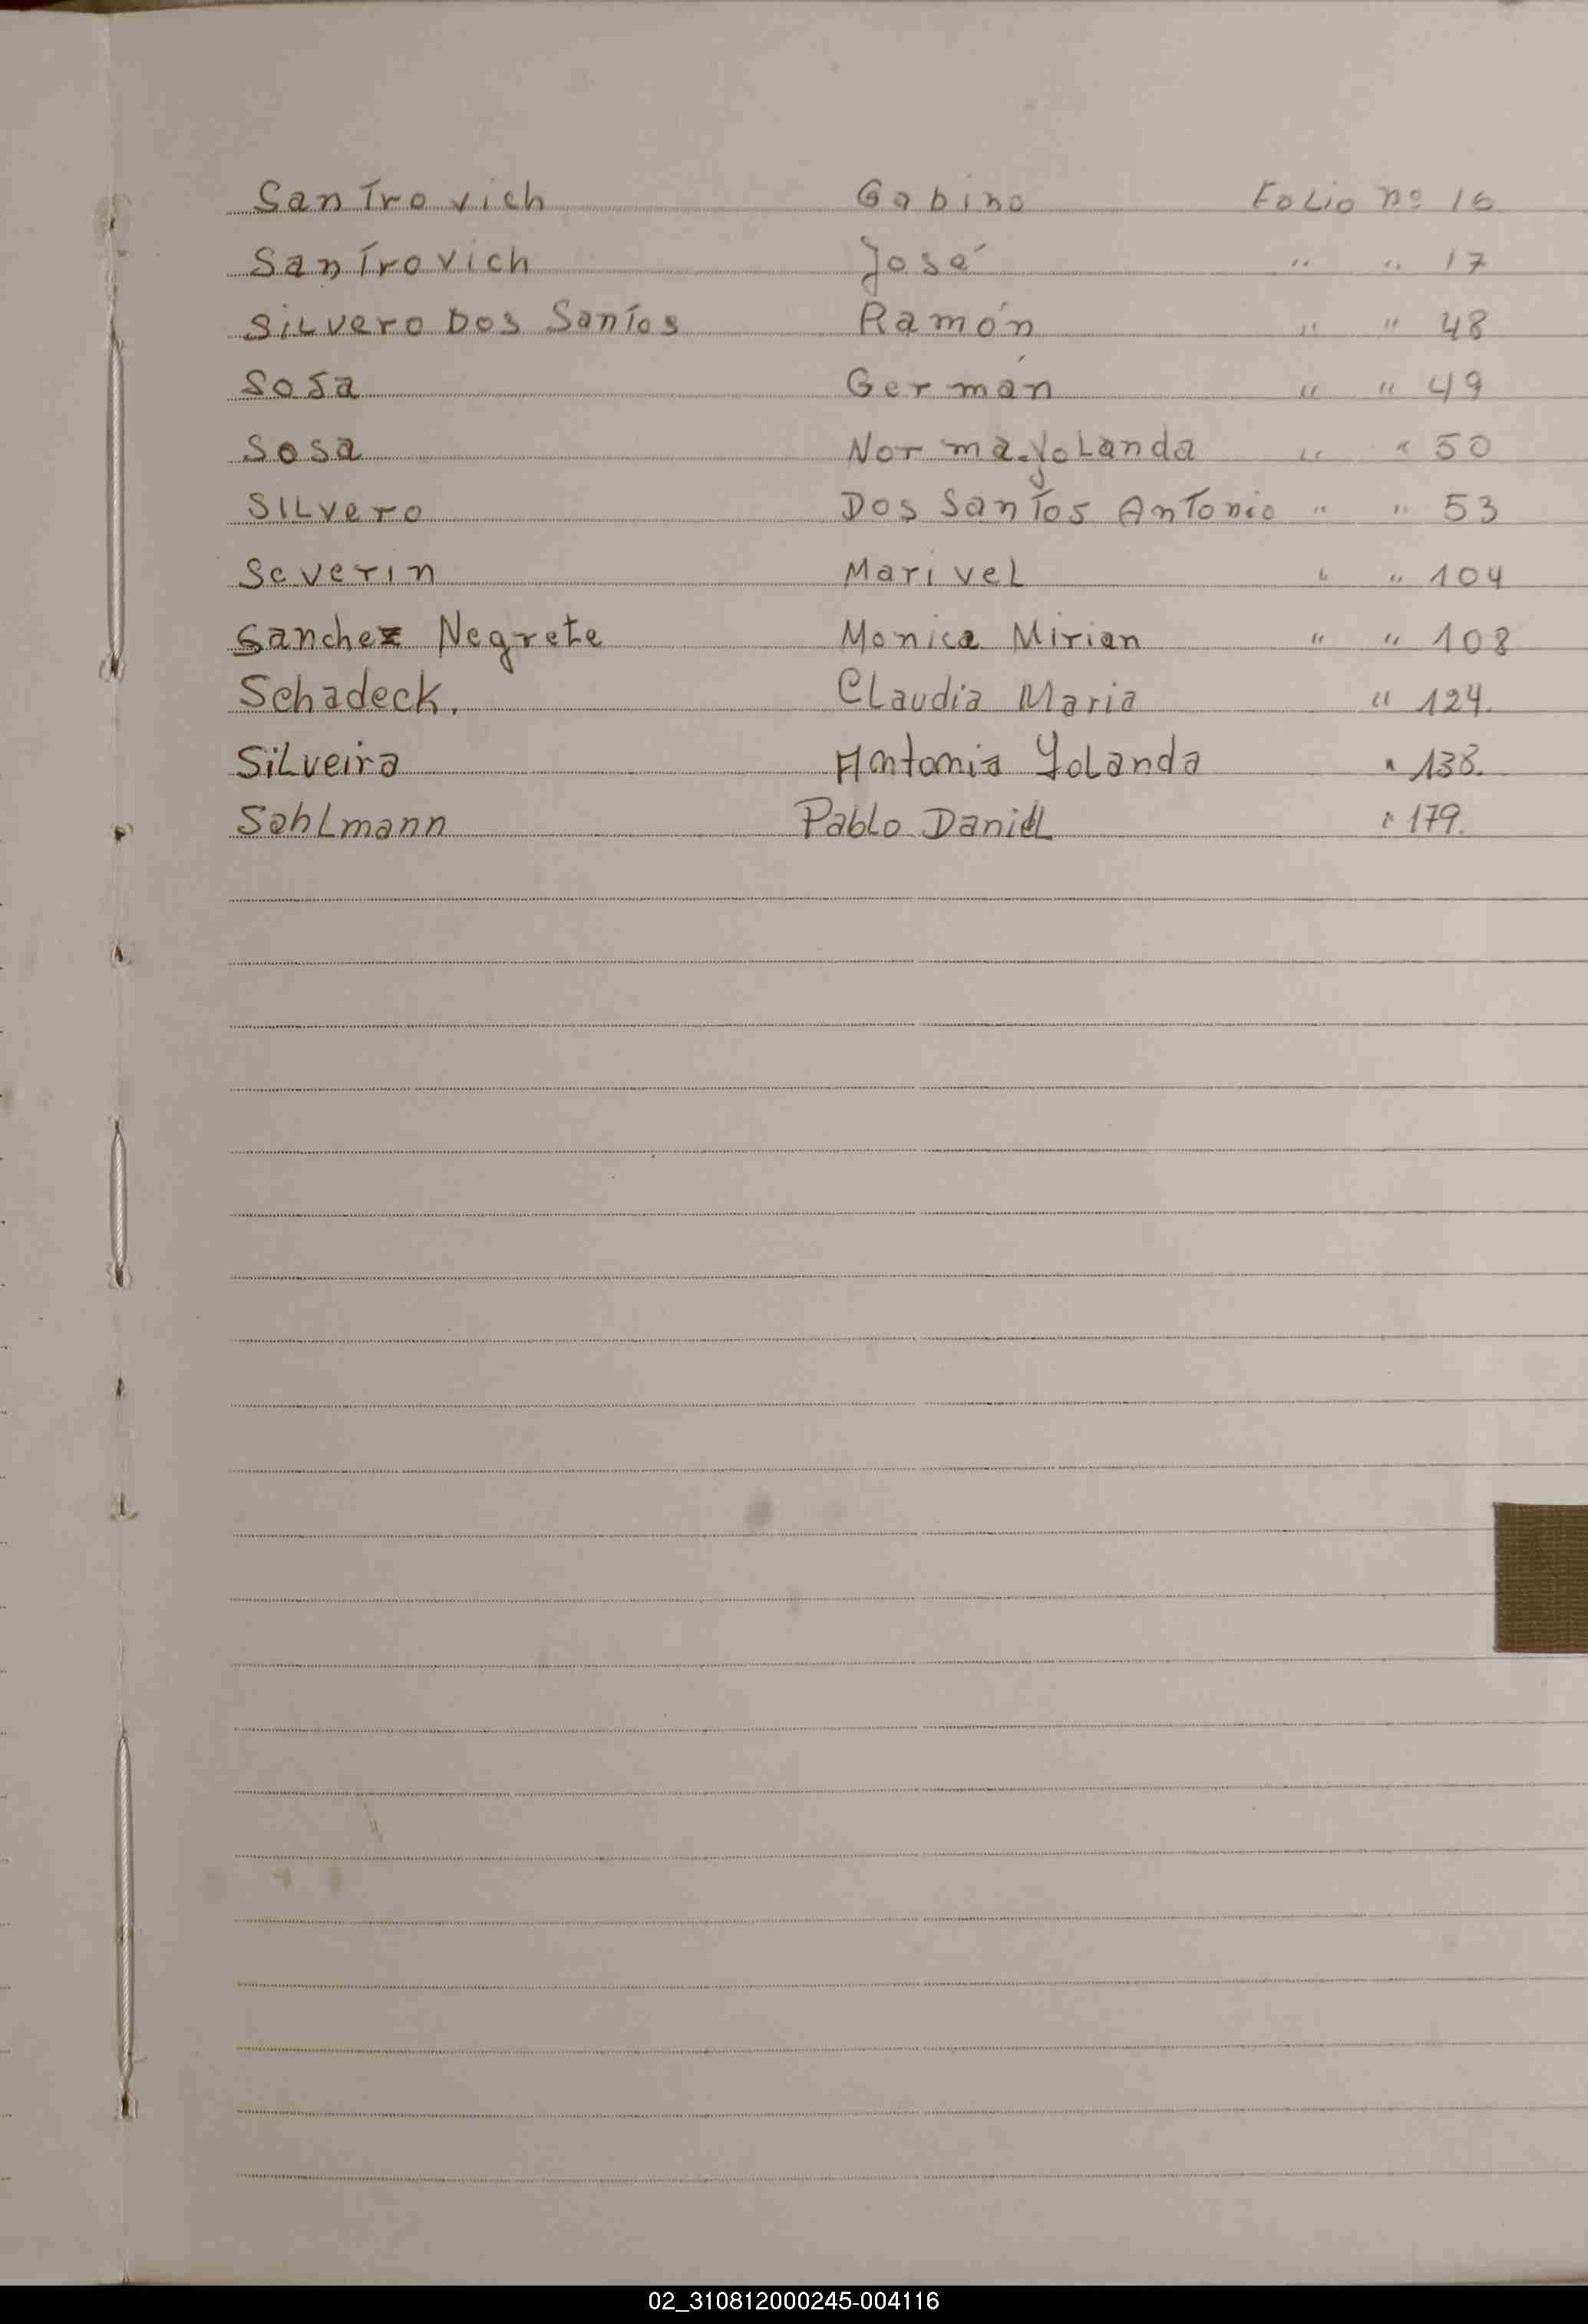 Santrovich Gabino Folio nº 16
Santrovich José " " 17
Silvero Dos Santos Ramón " " 48
Sosa Germán " " 49
Sosa Norma Yolanda " " 50
Silvero Dos Santos Antonio " " 53
Severin Marivel " " 104
Sanchez Negrete Monica Mirian " " 108
Schadeck. Claudia Maria " 124.
Silveira Antonia Yolanda " 138.
Sahlmann Pablo Daniel " 179.
02_310812000245-004116